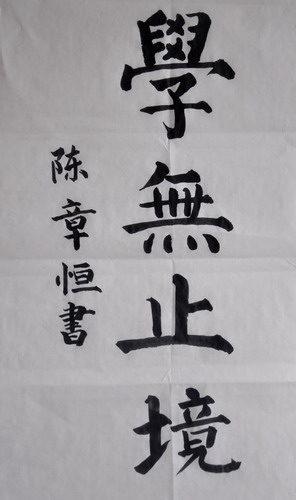 學無止境
陈章恒書